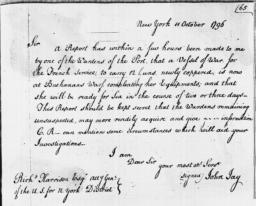 165
New York 11 October 1796
Sir
A Report has within a few hours been made to me
by one of the Wardens of the Port, that a Vessel of War for
the French Service, to carry 12 Guns, newly coppered, is now
at Buchanans Warf compleating her Equipments; and that
she will be ready for Sea in the course of two or three days—
This Report should be kept secret that the Wardens remaining
unsuspected, may more readily acquire and give information
C. R. can mention some circumstances which will aid your
Investigations.
I am
Dear Sir your most ob. Serv.
signed John Jay
Rich. Harrison Esq. Atty Gen.
of the U.S. for N York District